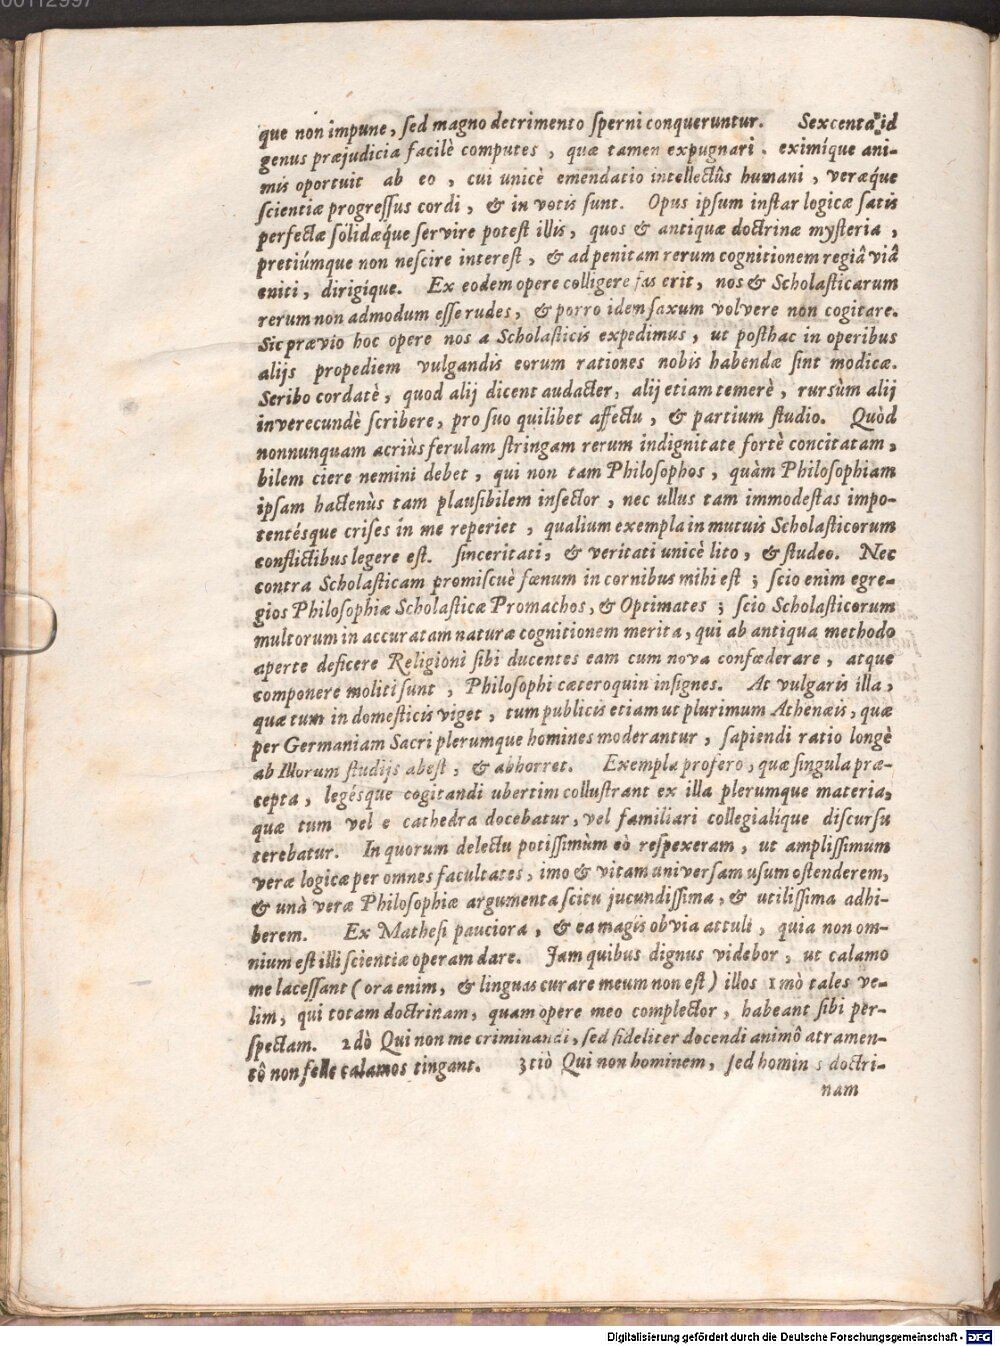 que non impune, ſed magno detrimento ſperni conqueruntur. Sexcenta id
genus præjudicia facilè computes, quæ tamen expugnari. eximíque ani-
mis oportuit ab eo, cui unicè emendatio intellectûs humani, veræq́ue
ſcientiæ progreſſus cordi, & in votis ſunt. Opus ipſum inſtar logicæ ſatis
perfectæ ſolidæq́ue ſervire poteſt illis, quos & antiquæ doctrinæ myſteria,
pretiúmque non neſcire intereſt, & ad penitam rerum cognitionem regiâ viâ
eniti, dirigíque. Ex eodem opere colligere fas erit, nos & Scholaſticarum
rerum non admodum eſſe rudes, & porro idem ſaxum volvere non cogitare.
Sic prævio hoc opere nos a Scholaſticis expedimus, ut poſthac in operibus
alijs propediem vulgandis eorum rationes nobis habendæ ſint modicæ.
Scribo cordatè, quod alij dicent audacter, alij etiam temerè, rursùm alij
inverecundè ſcribere, pro ſuo quilibet affectu, & partium ſtudio. Quòd
nonnunquam acriùs ferulam ſtringam rerum indignitate fortè concitatam,
bilem ciere nemini debet, qui non tam Philoſophos, quàm Philoſophiam
ipſam hactenùs tam plauſibilem inſector, nec ullus tam immodeſtas impo-
tentésque criſes in me reperiet, qualium exempla in mutuis Scholaſticorum
conflictibus legere eſt. ſinceritati, & veritati unicè lito, & ſtudeo. Nec
contra Scholaſticam promiſcuè fœnum in cornibus mihi eſt; ſcio enim egre-
gios Philoſophiæ Scholaſticæ Promachos, & Optimates; ſcio Scholaſticorum
multorum in accuratam naturæ cognitionem merita, qui ab antiqua methodo
aperte deficere Religioni ſibi ducentes eam cum nova confœderare, atque
componere moliti ſunt, Philoſophi cæteroquin inſignes. At vulgaris illa,
quæ tum in domeſticis viget, tum publicis etiam ut plurimum Athenæis, quæ
per Germaniam Sacri plerumque homines moderantur, ſapiendi ratio longè
ab Illorum ſtudijs abeſt, & abhorret. Exempla profero, quæ ſingula præ-
cepta, legésque cogitandi ubertim colluſtrant ex illa plerumque materia,
quæ tum vel e cathedra docebatur, vel familiari collegialíque diſcurſu
terebatur. In quorum delectu potiſſimùm eò reſpexeram, ut ampliſſimum
veræ logicæ per omnes facultates, imo & vitam univerſam uſum oſtenderem,
& unà veræ Philoſophiæ argumenta ſcitu jucundiſſima, & utiliſſima adhi-
berem. Ex Matheſi pauciora, & ea magis obvia attuli, quia non om-
nium eſt illi ſcientiæ operam dare. Jam quibus dignus videbor, ut calamo
me laceſſant (ora enim, & linguas curare meum non eſt) illos 1mò tales ve-
lim, qui totam doctrinam, quam opere meo complector, habeant ſibi per-
ſpectam. 2dò Qui non me criminandi, ſed fideliter docendi animô atramen-
tô non felle calamos tingant. 3tiò Qui non hominem, ſed homin s doctri-
nam
Digitalisierung gefördert durch die Deutsche Forschungsgemeinschaft - DFG